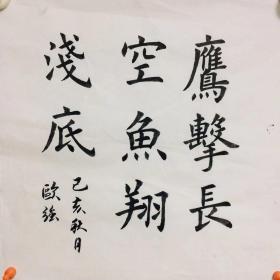 鷹擊長
空魚翔
淺底
己亥秋月
歐強